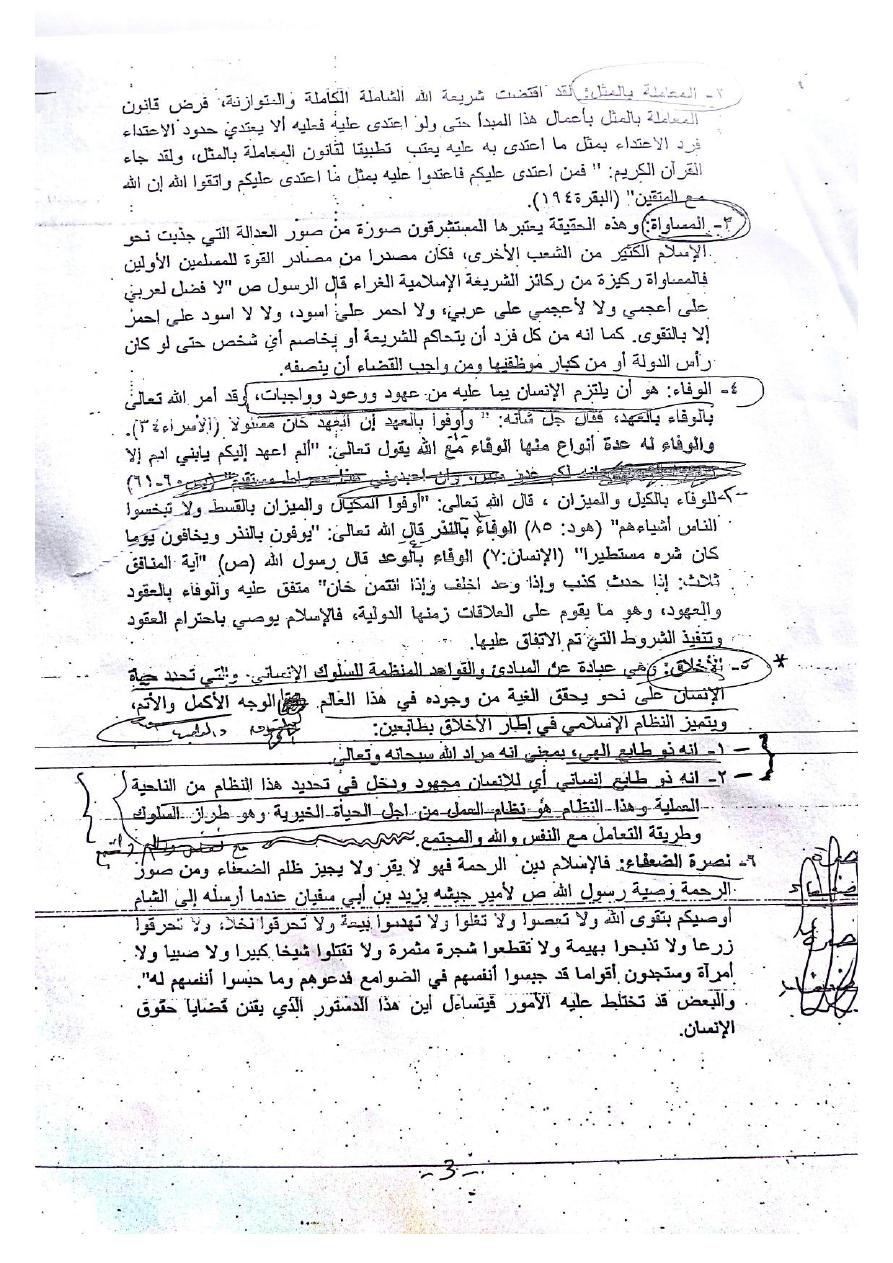 ٢- المعاملة بالمثل: لقد اقتضت شريعة الله الشاملة الكاملة والمتوازنة، فرض قانون
المعاملة بالمثل بأعمال هذا المبدأ حتى ولو اعتدى عليه فعليه ألا يعتدي حدود الاعتداء
فرد الاعتداء بمثل ما اعتدى به عليه يعتب تطبيقا لقانون المعاملة بالمثل، ولقد جاء
القرآن الكريم: "فمن اعتدى عليكم فاعتدوا عليه بمثل ما اعتدى عليكم واتقوا الله إن الله
مع المتقين" (البقرة١٩٤).
٣- المساواة: وهذه الحقيقة يعتبرها المستشرقون صورة من صور العدالة التي جذبت نحو
الإسلام الكثير من الشعب الأخرى، فكان مصدرا من مصادر القوة للمسلمين الأولين
فالمساواة ركيزة من ركائز الشريعة الإسلامية الغراء قال الرسول ص "لا فضل لعربي
على أعجمي ولا لأعجمي على عربي، ولا احمر على اسود، ولا لا اسود على احمر
إلا بالتقوى. كما انه من كل فرد أن يتحاكم للشريعة أو يخاصم أي شخص حتى لو كان
رأس الدولة أو من كبار موظفيها ومن واجب القضاء أن ينصفه.
٤- الوفاء: هو أن يلتزم الإنسان بما عليه من عهود ووعود وواجبات، وقد أمر الله تعالى
بالوفاء بالعهد، فقال جل شأنه: "وأوفوا بالعهد إن العهد كان مسئولا (الأسراء٣٤).
والوفاء له عدة أنواع منها الوفاء مع الله يقول تعالى: "ألم اعهد إليكم يابني ادم إلا
انه لكم عدو مبين، وان اعبدوني هذا صراط مستقيم" (يس ٦٠-٦١)
٢- للوفاء بالكيل والميزان ، قال الله تعالى: "أوفوا المكيال والميزان بالقسط ولا تبخسوا
الناس أشياءهم" (هود: ٨٥) الوفاء بالنذر قال الله تعالى: "يوفون بالنذر ويخافون يوما
كان شره مستطيرا" (الإنسان:٧) الوفاء بالوعد قال رسول الله (ص) "آية المنافق
ثلاث: إذا حدث كذب وإذا وعد اخلف وإذا ائتمن خان" متفق عليه والوفاء بالعقود
والعهود، وهو ما يقوم على العلاقات زمنها الدولية، فالإسلام يوصي باحترام العقود
وتنفيذ الشروط التي تم الاتفاق عليها.
* ٥- الأخلاق: وهي عبادة عن المبادئ والقواعد المنظمة للسلوك الإنساني، والتي تحدد حياة
الإنسان على نحو يحقق الغية من وجوده في هذا العالم الوجه الأكمل والأتم،
ويتميز النظام الإسلامي في إطار الأخلاق بطابعين:
١- انه ذو طابع الهي، بمعنى انه مراد الله سبحانه وتعالى
٢- انه ذو طابع انساني أي للانسان مجهود ودخل في تحديد هذا النظام من الناحية
العملية وهذا النظام هو نظام العمل من اجل الحياة الخيرية وهو طراز السلوك
وطريقة التعامل مع النفس والله والمجتمع.
٦- نصرة الضعفاء: فالإسلام دين الرحمة فهو لا يقر ولا يجيز ظلم الضعفاء ومن صور
الرحمة وصية رسول الله ص لأمير جيشه يزيد بن أبي سفيان عندما أرسله إلى الشام
أوصيكم بتقوى الله ولا تعصوا ولا تغلوا ولا تهدموا بيعة ولا تحرقوا نخلا، ولا تحرقوا
زرعا ولا تذبحوا بهيمة ولا تقطعوا شجرة مثمرة ولا تقتلوا شيخا كبيرا ولا صبيا ولا
امرأة وستجدون أقواما قد حبسوا أنفسهم في الصوامع فدعوهم وما حبسوا أنفسهم له".
والبعض قد تختلط عليه الأمور فيتساءل أين هذا الدستور الذي يقنن قضايا حقوق
الإنسان.
-3-